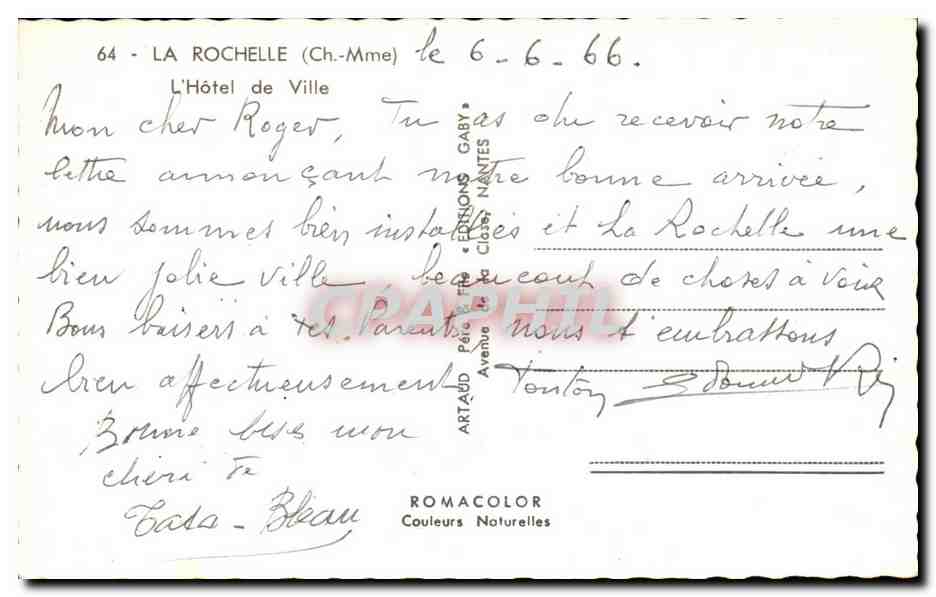 64 - LA ROCHELLE (Ch.-Mme) le 6-6-66.
L'Hôtel de Ville
Mon cher Roger, Tu as du recevoir notre
lettre annonçant notre bonne arrivée,
nous sommes bien installés et La Rochelle une
bien jolie ville, beaucoup de choses à voir
Bons baisers à tes Parents, nous t'embrassons
bien affectueusement Tonton
Bonne bises mon
chéri
Tata -
ARTAUD Père & Fils « EDITIONS GABY »
Avenue de la Close, NANTES
ROMACOLOR
Couleurs Naturelles
CPAPHIL